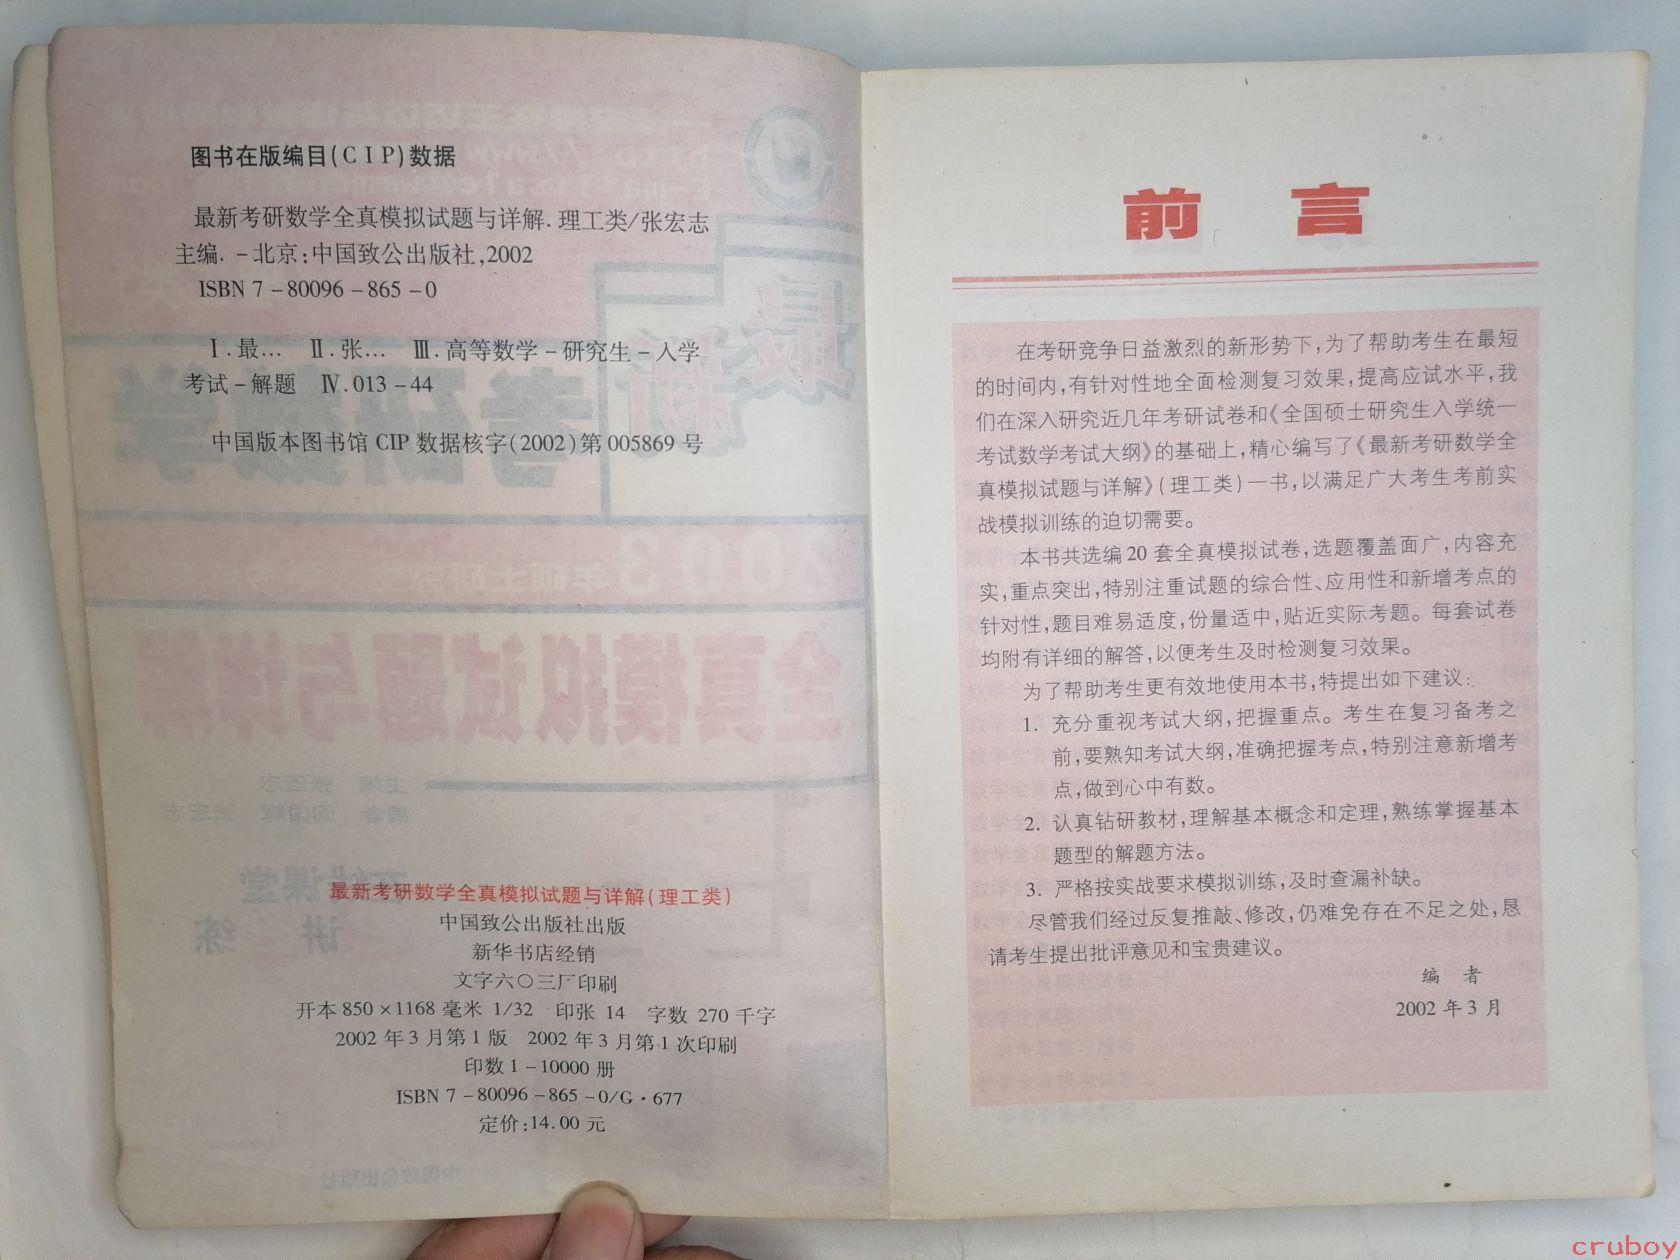 图书在版编目(CIP)数据
最新考研数学全真模拟试题与详解.理工类/张宏志
主编.-北京:中国致公出版社,2002
ISBN 7-80096-865-0
Ⅰ.最… Ⅱ.张… Ⅲ.高等数学-研究生-入学
考试-解题 Ⅳ.013-44
中国版本图书馆CIP数据核字(2002)第005869号
最新考研数学全真模拟试题与详解(理工类)
中国致公出版社出版
新华书店经销
文字六〇三厂印刷
开本850×1168毫米 1/32 印张 14 字数 270千字
2002年3月第1版 2002年3月第1次印刷
印数1-10000册
ISBN 7-80096-865-0/G·677
定价:14.00元
前言
在考研竞争日益激烈的新形势下,为了帮助考生在最短
的时间内,有针对性地全面检测复习效果,提高应试水平,我
们在深入研究近几年考研试卷和《全国硕士研究生入学统一
考试数学考试大纲》的基础上,精心编写了《最新考研数学全
真模拟试题与详解》(理工类)一书,以满足广大考生考前实
战模拟训练的迫切需要。
本书共选编20套全真模拟试卷,选题覆盖面广,内容充
实,重点突出,特别注重试题的综合性、应用性和新增考点的
针对性,题目难易适度,份量适中,贴近实际考题。每套试卷
均附有详细的解答,以便考生及时检测复习效果。
为了帮助考生更有效地使用本书,特提出如下建议:
1. 充分重视考试大纲,把握重点。考生在复习备考之
前,要熟知考试大纲,准确把握考点,特别注意新增考
点,做到心中有数。
2. 认真钻研教材,理解基本概念和定理,熟练掌握基本
题型的解题方法。
3. 严格按实战要求模拟训练,及时查漏补缺。
尽管我们经过反复推敲、修改,仍难免存在不足之处,恳
请考生提出批评意见和宝贵建议。
编 者
2002年3月
cruboy